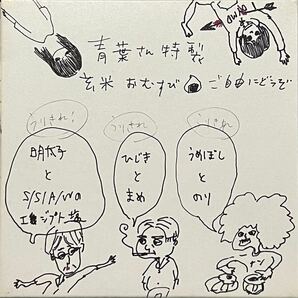 青葉さん特製
玄米おむすび🍙ご自由にどうぞ
うりきれ!
明太子
と
S/S/A/W.O
エジプト塩
うりきれ
ひじき
と
まめ
うりきれ
うめぼし
と
のり